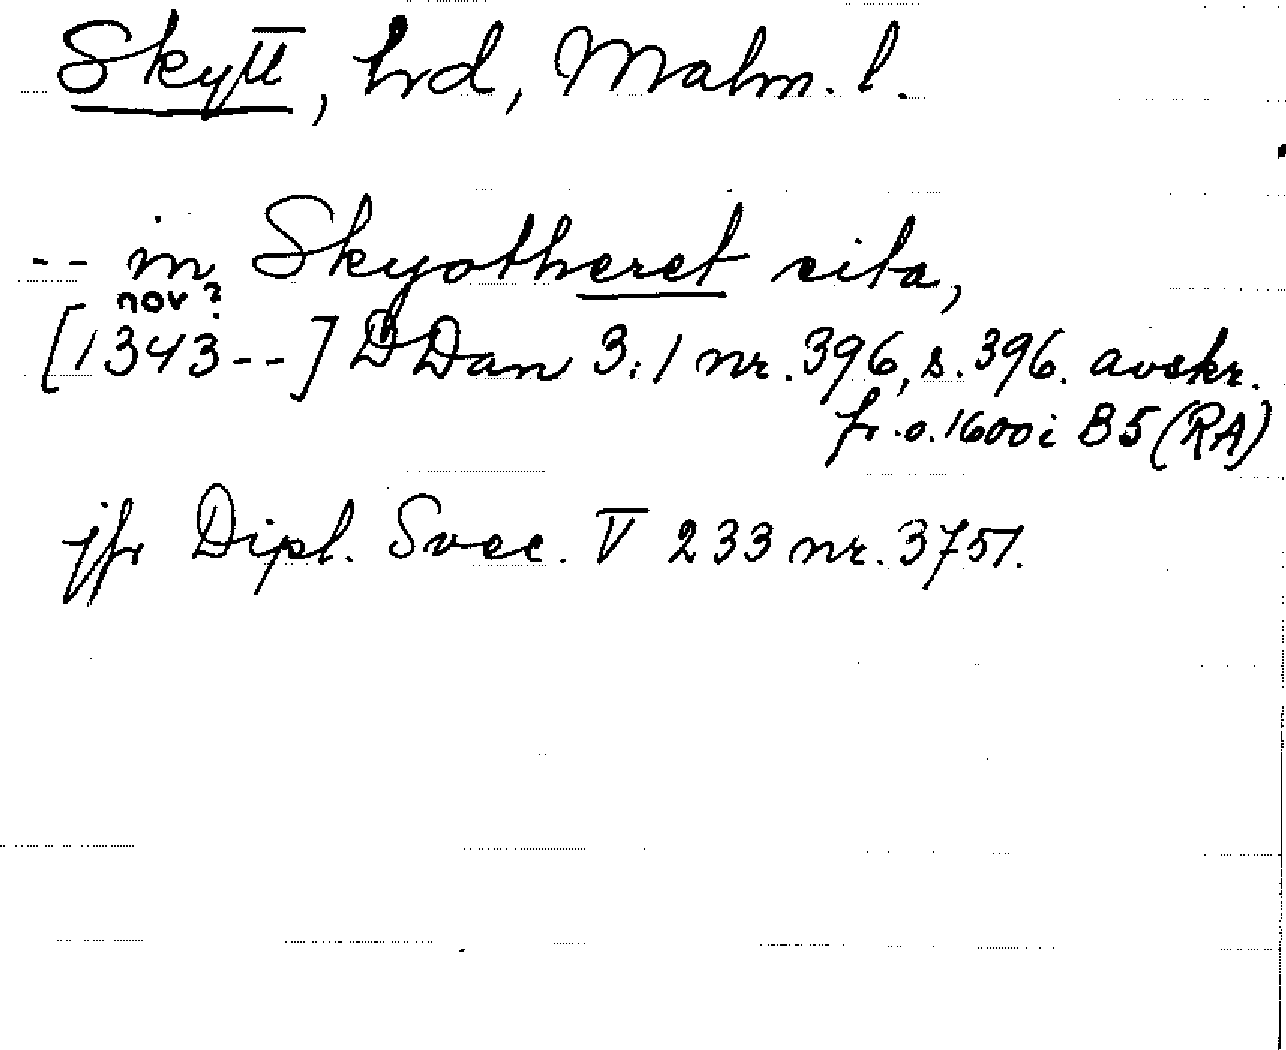 Skytt, hrd, Malm. l.
-- in Skyotheret sita,
nov?
[1343--] DDan 3:1 nr. 396, s. 396. avskr.
fr. o. 1600 i B5 (RA)
jfr Dipl. Svec. V 233 nr. 3751.